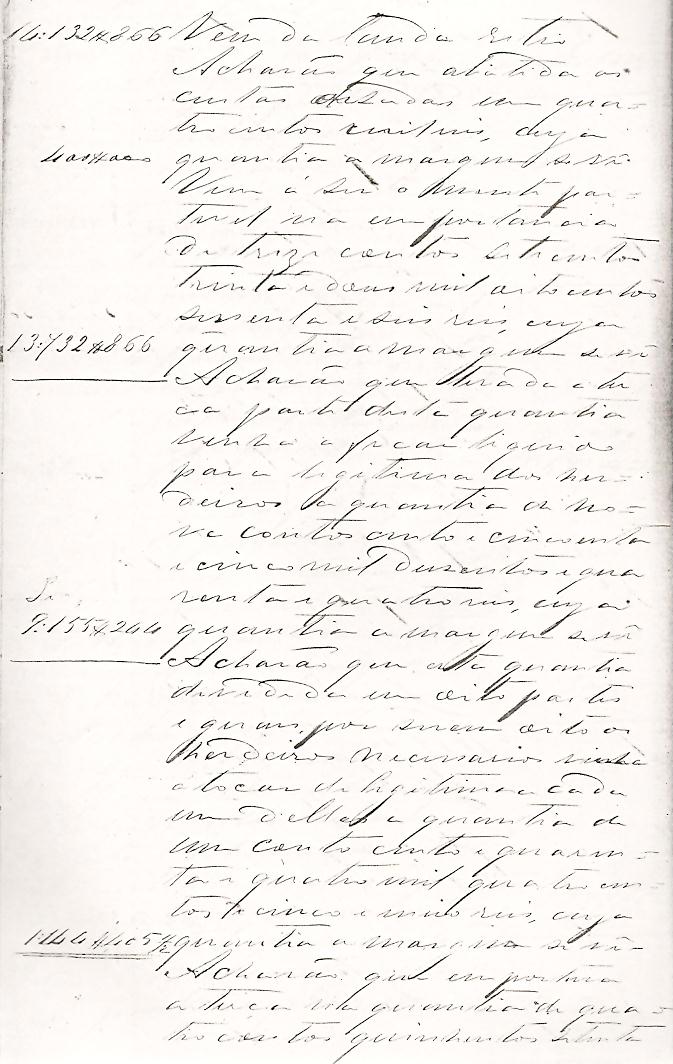 14:132$866 Vem da Lauda retro
Acharão que abatida as
custas orsadas em qua-
tro centos mil reis, cuja
400$000 quantia a margem se vê
Vem á ser o monte par-
tivel na importancia
de treze contos setecentos
trinta e dous mil oito centos
sessenta e seis reis, cuja
13:732$866 quantia a margem se vê
Acharão que tirada a ter
ça parte desta quantia
venha a ficar liquido
para legitima dos her-
deiros a quantia de no-
ve contos cento e cincoenta
e cinco mil duzentos e qua
renta e quatro reis, cuja
9:155$244 quantia a margem se vê
Acharão que esta quantia
devedida em oito partes
e guaes, por serem oito os
herdeiros necessarios vinha
a tocar de legitima a cada
um delles a quantia de
um conto cento e quaren-
ta e quatro mil quatro cen-
tos e cinco e meio reis, cuja
1:144$405½ quantia a margem se vê
Acharão que emportava
a terça na quantia de qua-
tro contos quinhentos setenta